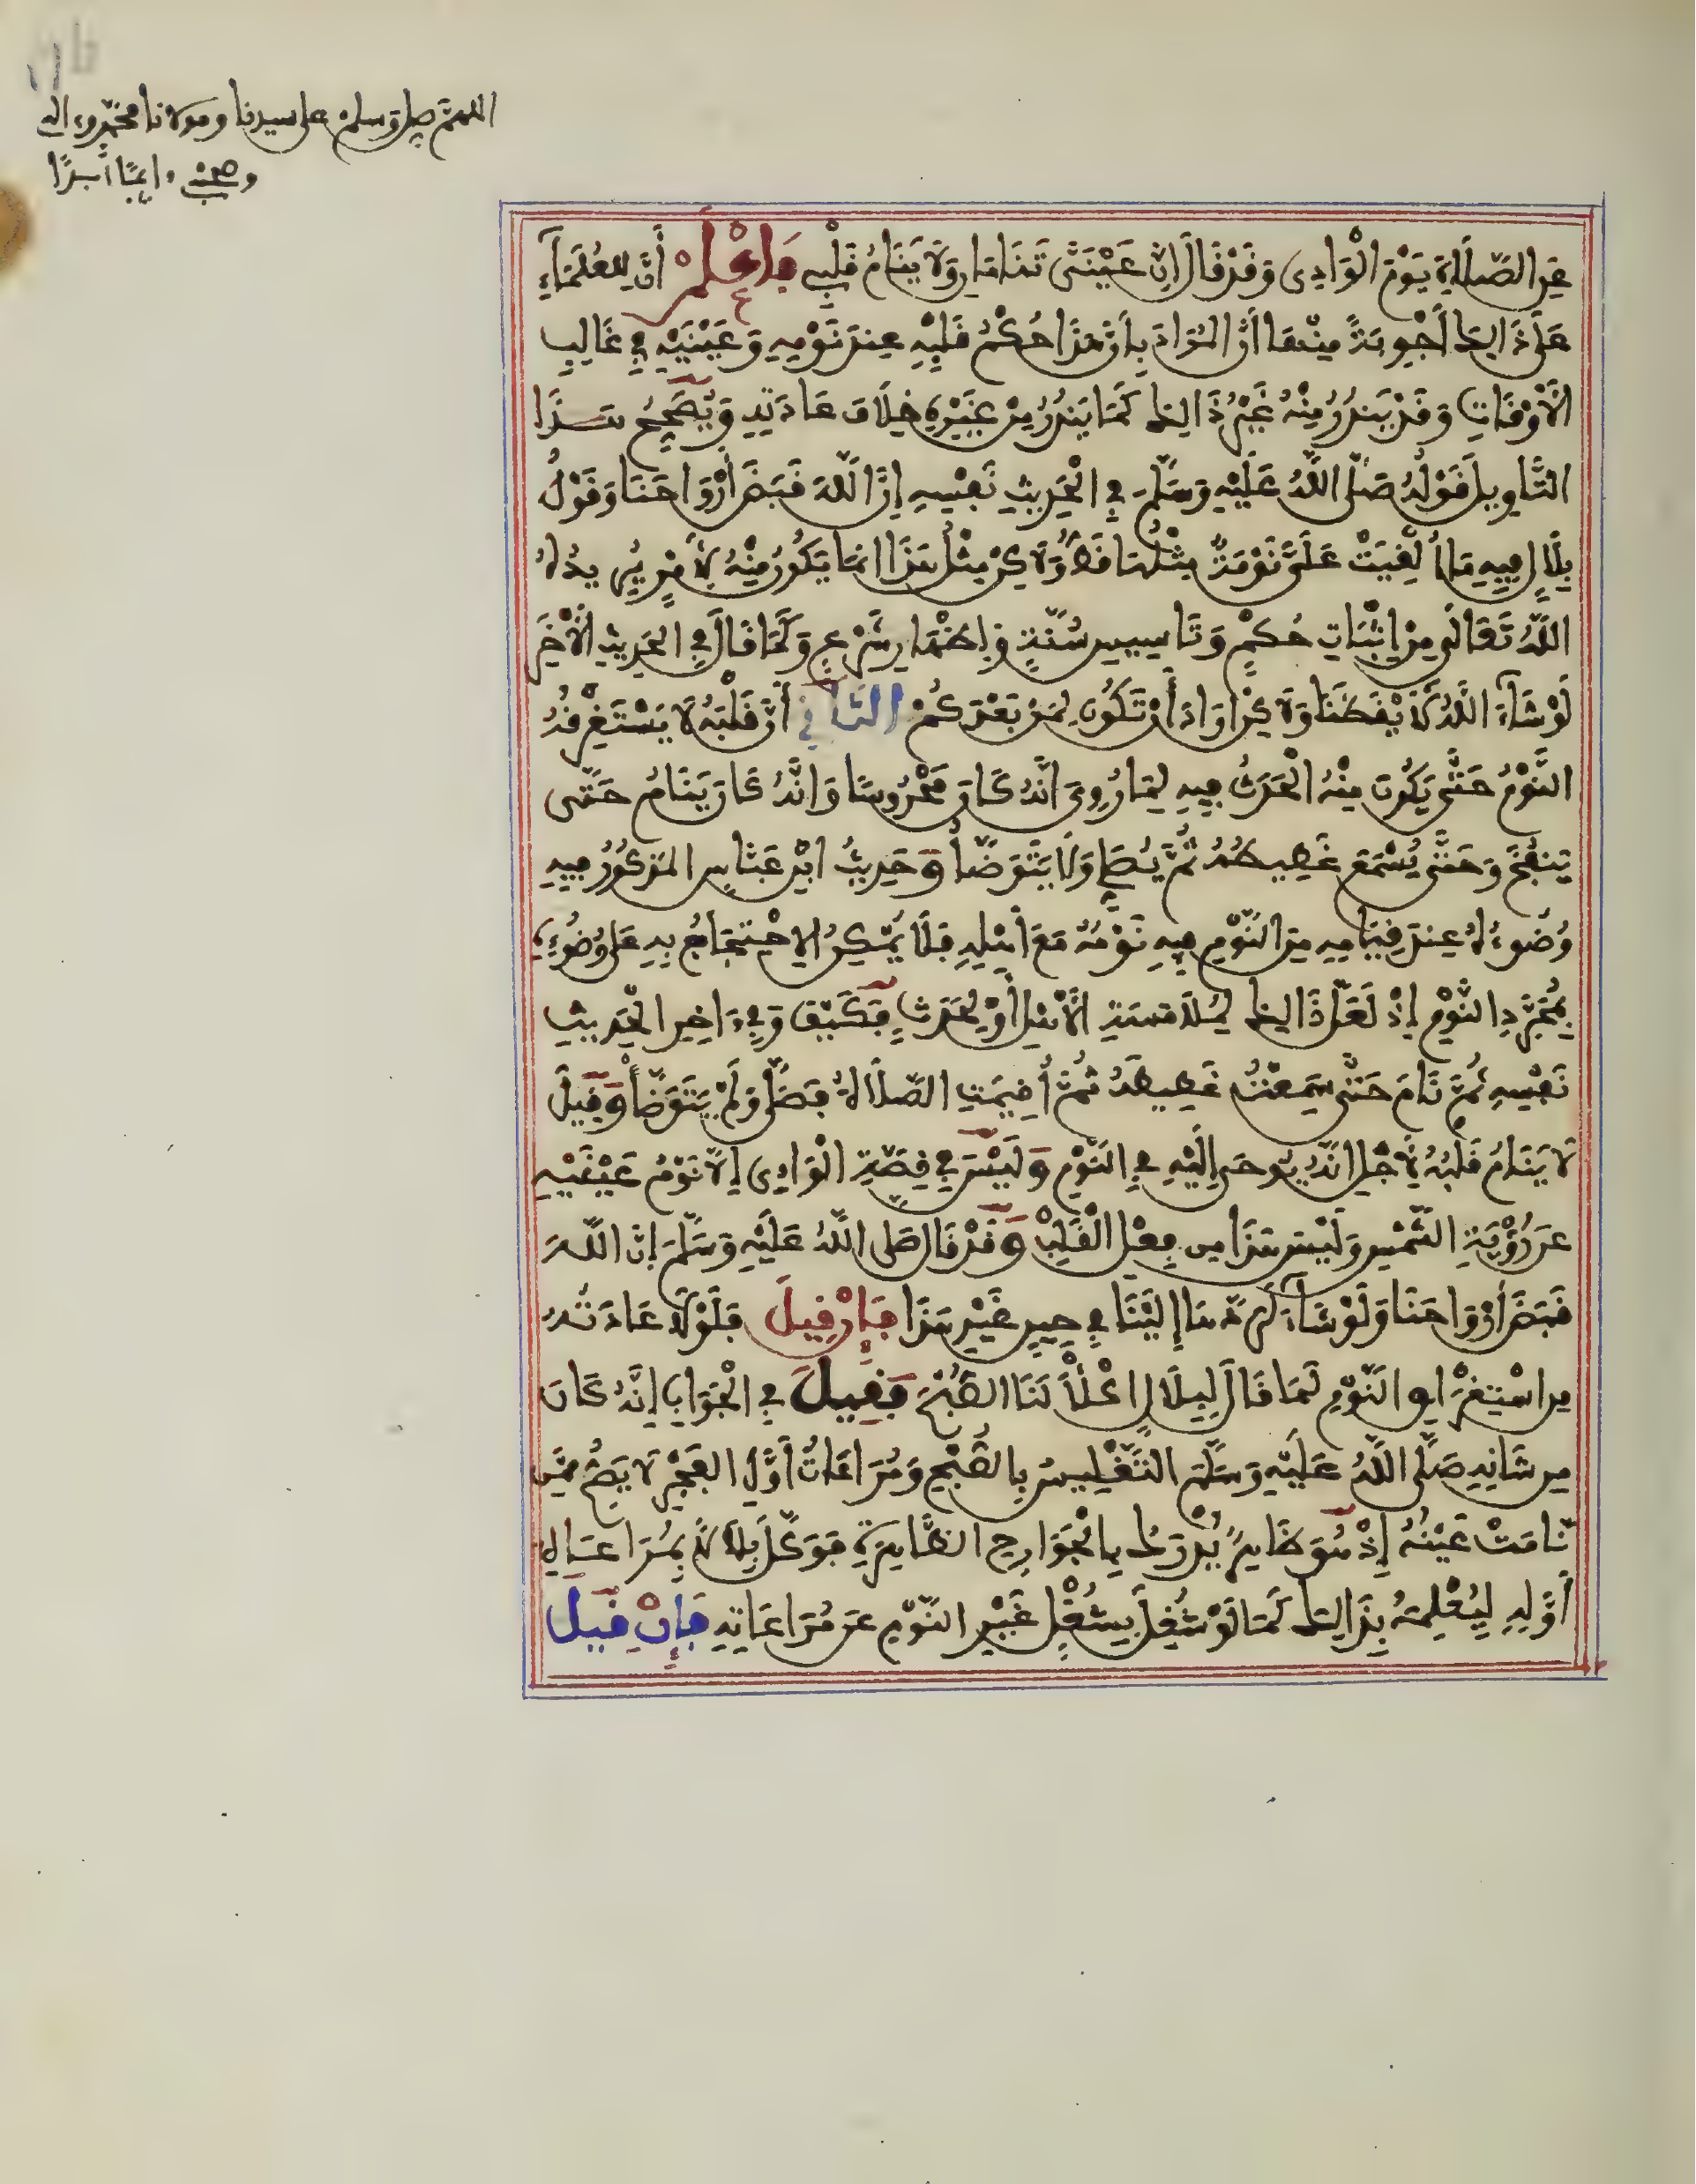 اللهم صل وسلم على سيدنا ومولانا محمد وءاله
وصحبه دايما أبدا
عن الصَّلاةِ يَوْمَ الْوَادِى وَقَدْ قَالَ إنَّ عَيْنَيَّ تَنَامَانِ وَلَا يَنَامُ قَلْبِى فَاعْلَمْ أنَّ لِلْعُلَمَاءِ
عَلَى ذَالِكَ أَجْوِبَةً مِنْهَا أنَّ الْمُرَادَ بِأنَّ هَذَا حُكْمُ قَلْبِهِ عِندَ نَوْمِهِ وَعَيْنَيْهِ فِي غَالِبِ
الأَوْقَاتِ وَقَدْ يَندُرُ مِنْهُ غَيْرُ ذَالِكَ كَمَا يَندُرُ مِنْ غَيْرِهِ خِلَافُ عَادَتِهِ وَيُصَحِّحُ هَذَا
التَّاوِيلَ قَوْلُهُ صَلَّى اللَّهُ عَلَيْهِ وَسَلَّمَ فِي الْحَدِيثِ نَفْسِهِ إنَّ اللَّهَ قَبَضَ أَرْوَاحَنَا وَقَوْلُ
بِلَالٍ فِيهِ مَا أُلْقِيَتْ عَلَيَّ نَوْمَةٌ مِثْلُهَا قَطُّ وَلَاكِنْ مِثْلُ هَذَا إنَّمَا يَكُونُ مِنْهُ لِأَمْرٍ يُرِيدُهُ
اللَّهُ تَعَالَى مِنْ إِثْبَاتِ حُكْمٍ وَتَأْسِيسِ سُنَّةٍ وَإِظْهَارِ شَرْعٍ وَكَمَا قَالَ فِي الْحَدِيثِ الْأَخَرِ
لَوْ شَاءَ اللَّهُ لَأَيْقَظَنَا وَلَاكِنْ أَرَادَ أَنْ تَكُونَ لِمَنْ بَعْدَكُمْ الثاني أنَّ قَلْبَهُ لَا يَسْتَغْرِقُهُ
النَّوْمُ حَتَّى يَكُونَ مِنْهُ الْحَدَثُ فِيهِ لِمَا رُوِىَ أَنَّهُ كَانَ مَحْرُوسًا وَأَنَّهُ كَانَ يَنَامُ حَتَّى
يَنفُخَ وَحَتَّى يُسْمَعَ غَطِيطُهُ ثُمَّ يُصَلِّي وَلَا يَتَوَضَّأُ وَحَدِيثُ ابْنِ عَبَّاسٍ الْمَذْكُورُ فِيهِ
وُضُوءُهُ عِندَ قِيَامِهِ مِنَ النَّوْمِ فِيهِ نَوْمُهُ مَعَ أَهْلِهِ فَلَا يُمْكِنُ الِاحْتِجَاجُ بِهِ عَلَى وُضُوءِهِ
بِمُجَرَّدِ النَّوْمِ إِذْ لَعَلَّ ذَالِكَ لِمُلَامَسَةِ الْأَهْلِ أَوْ لِحَدَثٍ فَكَيْفَ وَفِي ءَاخِرِ الْحَدِيثِ
نَفْسِهِ ثُمَّ نَامَ حَتَّى سَمِعْتُ غَطِيطَهُ ثُمَّ أُقِيمَتِ الصَّلَاةُ فَصَلَّى وَلَمْ يَتَوَضَّأْ وَقِيلَ
لَا يَنَامُ قَلْبُهُ لِأَجْلِ أَنَّهُ يُوحَى إِلَيْهِ فِي النَّوْمِ وَلَيْسَ فِي قِصَّةِ الْوَادِى إِلَّا نَوْمُ عَيْنَيْهِ
عَنْ رُؤْيَةِ الشَّمْسِ وَلَيْسَ هَذَا مِن فِعْلِ الْقَلْبِ وَقَدْ قَالَ صَلَّى اللَّهُ عَلَيْهِ وَسَلَّمَ إِنَّ اللَّهَ
قَبَضَ أَرْوَاحَنَا وَلَوْ شَاءَ لَرَدَّهَا إِلَيْنَا فِي حِينٍ غَيْرِ هَذَا فَإِنْ قِيلَ فَلَوْلَا عَادَتُهُ
مِن اسْتِغْرَاقِ النَّوْمِ لَمَا قَالَ لِبِلَالٍ إِكْلَأْ لَنَا الصُّبْحَ فَقِيلَ فِي الْجَوَابِ إِنَّهُ كَانَ
مِن شَانِهِ صَلَّى اللَّهُ عَلَيْهِ وَسَلَّمَ التَّغْلِيسُ بِالصُّبْحِ وَمُرَاعَاتُ أَوَّلِ الْفَجْرِ لَا يَصِحُّ مِمَّن
نَامَتْ عَيْنُهُ إِذْ هُوَ ظَاهِرٌ يُدْرَكُ بِالْجَوَارِحِ الظَّاهِرَةِ فَوَكَّلَ بِلَالًا بِمُرَاعَاةِ
أَوَّلِهِ لِيُعْلِمَهُ بِذَالِكَ كَمَا لَوْ شُغِلَ بِشُغْلٍ غَيْرِ النَّوْمِ عَنْ مُرَاعَاتِهِ فَإِنْ قِيلَ